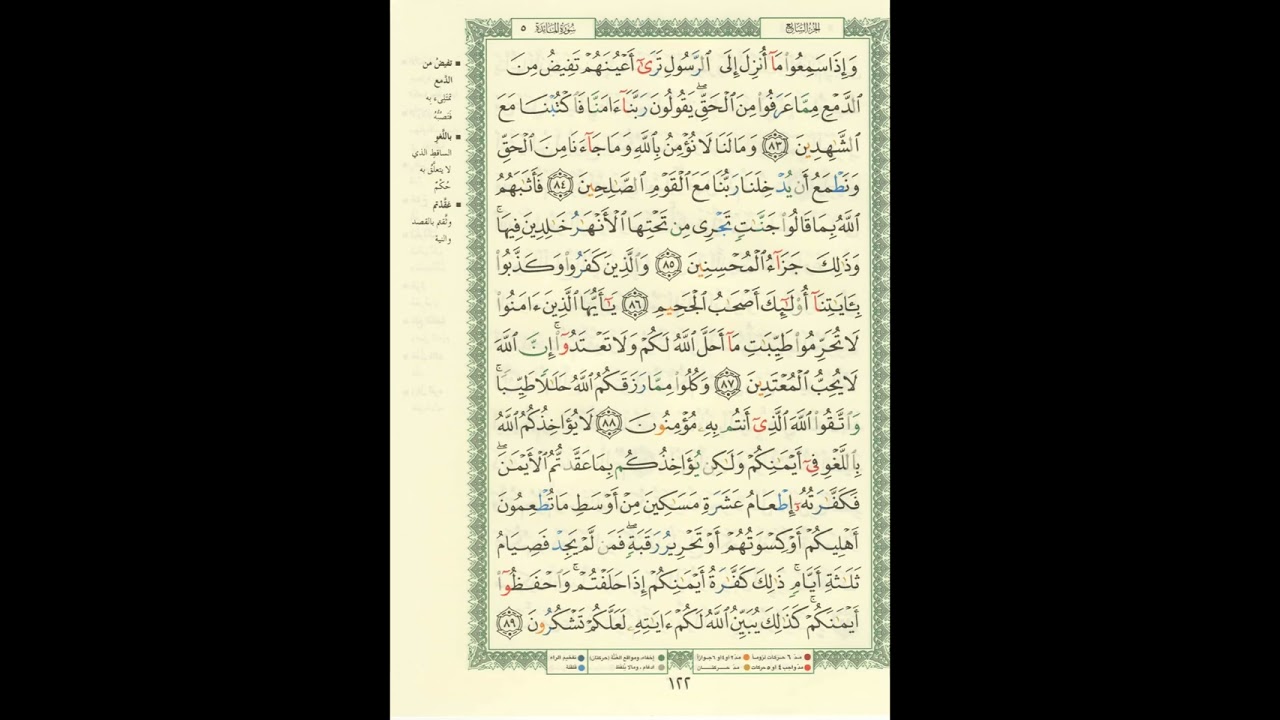 الجزء السابع
سورة المائدة ٥
وَإِذَا سَمِعُوا۟ مَآ أُنزِلَ إِلَى ٱلرَّسُولِ تَرَىٰٓ أَعْيُنَهُمْ تَفِيضُ مِنَ
ٱلدَّمْعِ مِمَّا عَرَفُوا۟ مِنَ ٱلْحَقِّ ۖ يَقُولُونَ رَبَّنَآ ءَامَنَّا فَٱكْتُبْنَا مَعَ
ٱلشَّٰهِدِينَ ٨٣ وَمَا لَنَا لَا نُؤْمِنُ بِٱللَّهِ وَمَا جَآءَنَا مِنَ ٱلْحَقِّ
وَنَطْمَعُ أَن يُدْخِلَنَا رَبُّنَا مَعَ ٱلْقَوْمِ ٱلصَّٰلِحِينَ ٨٤ فَأَثَٰبَهُمُ
ٱللَّهُ بِمَا قَالُوا۟ جَنَّٰتٍ تَجْرِى مِن تَحْتِهَا ٱلْأَنْهَٰرُ خَٰلِدِينَ فِيهَا ۚ
وَذَٰلِكَ جَزَآءُ ٱلْمُحْسِنِينَ ٨٥ وَٱلَّذِينَ كَفَرُوا۟ وَكَذَّبُوا۟
بِـَٔايَٰتِنَآ أُو۟لَٰٓئِكَ أَصْحَٰبُ ٱلْجَحِيمِ ٨٦ يَٰٓأَيُّهَا ٱلَّذِينَ ءَامَنُوا۟
لَا تُحَرِّمُوا۟ طَيِّبَٰتِ مَآ أَحَلَّ ٱللَّهُ لَكُمْ وَلَا تَعْتَدُوٓا۟ ۚ إِنَّ ٱللَّهَ
لَا يُحِبُّ ٱلْمُعْتَدِينَ ٨٧ وَكُلُوا۟ مِمَّا رَزَقَكُمُ ٱللَّهُ حَلَٰلًا طَيِّبًا ۚ
وَٱتَّقُوا۟ ٱللَّهَ ٱلَّذِىٓ أَنتُم بِهِۦ مُؤْمِنُونَ ٨٨ لَا يُؤَاخِذُكُمُ ٱللَّهُ
بِٱللَّغْوِ فِىٓ أَيْمَٰنِكُمْ وَلَٰكِن يُؤَاخِذُكُم بِمَا عَقَّدتُّمُ ٱلْأَيْمَٰنَ ۖ
فَكَفَّٰرَتُهُۥٓ إِطْعَامُ عَشَرَةِ مَسَٰكِينَ مِنْ أَوْسَطِ مَا تُطْعِمُونَ
أَهْلِيكُمْ أَوْ كِسْوَتُهُمْ أَوْ تَحْرِيرُ رَقَبَةٍ ۖ فَمَن لَّمْ يَجِدْ فَصِيَامُ
ثَلَٰثَةِ أَيَّامٍ ۚ ذَٰلِكَ كَفَّٰرَةُ أَيْمَٰنِكُمْ إِذَا حَلَفْتُمْ ۚ وَٱحْفَظُوٓا۟
أَيْمَٰنَكُمْ ۚ كَذَٰلِكَ يُبَيِّنُ ٱللَّهُ لَكُمْ ءَايَٰتِهِۦ لَعَلَّكُمْ تَشْكُرُونَ ٨٩
تفيضُ من
الدّمع
تمتلىء به
فتصبّه
باللّغو
الساقط الذي
لا يتعلّق به
حُكمٌ
عقّدتم
وثّقتم بالقصد
والنية
مدّ ٦ حركات لزوماً
مدّ ٢ أو ٤ أو ٦ جوازاً
إخفاء، ومواقع الغُنَّة (حركتان)
تفخيم الراء
مدّ واجب ٤ أو ٥ حركات
مدّ حركتان
ادغام، وما لا يُلفظ
قلقلة
١٢٢